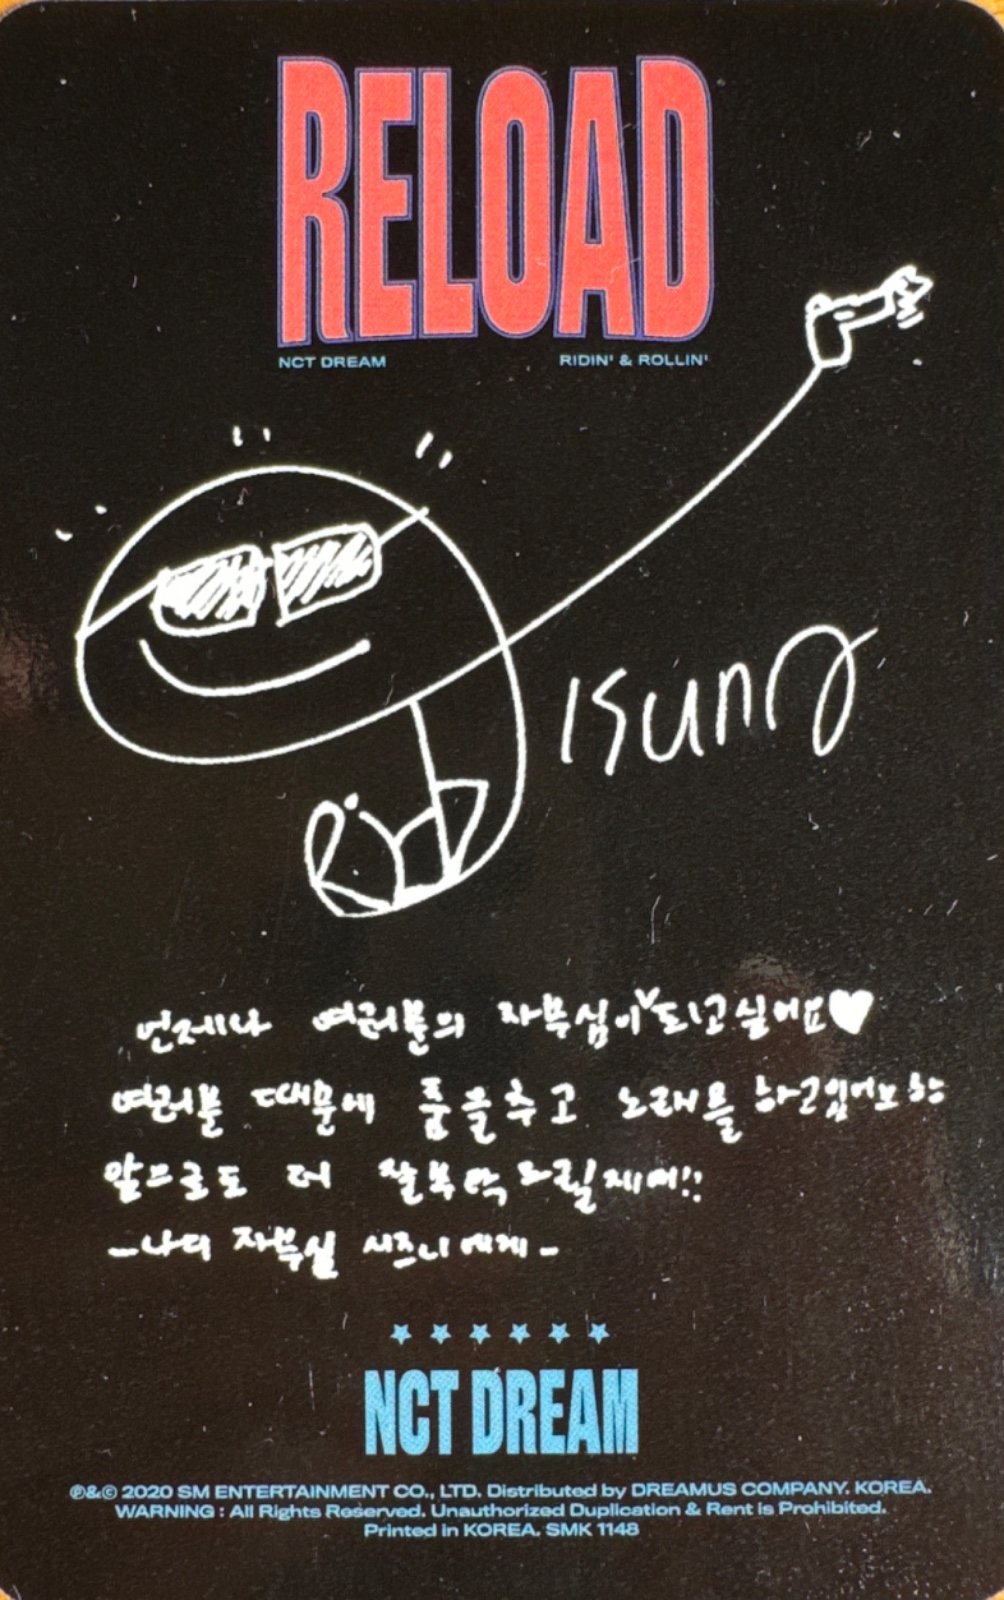 RELOAD
NCT DREAM RIDIN' & ROLLIN'
Jisung
언제나 여러분의 자부심이 되고싶어요♥
여러분 때문에 춤을추고 노래를 하고있어요
앞으로도 더 잘부탁드릴게여!!
-나의 자부심 시즈니에게-
NCT DREAM
℗&© 2020 SM ENTERTAINMENT CO., LTD. Distributed by DREAMUS COMPANY. KOREA.
WARNING : All Rights Reserved. Unauthorized Duplication & Rent is Prohibited.
Printed in KOREA. SMK 1148